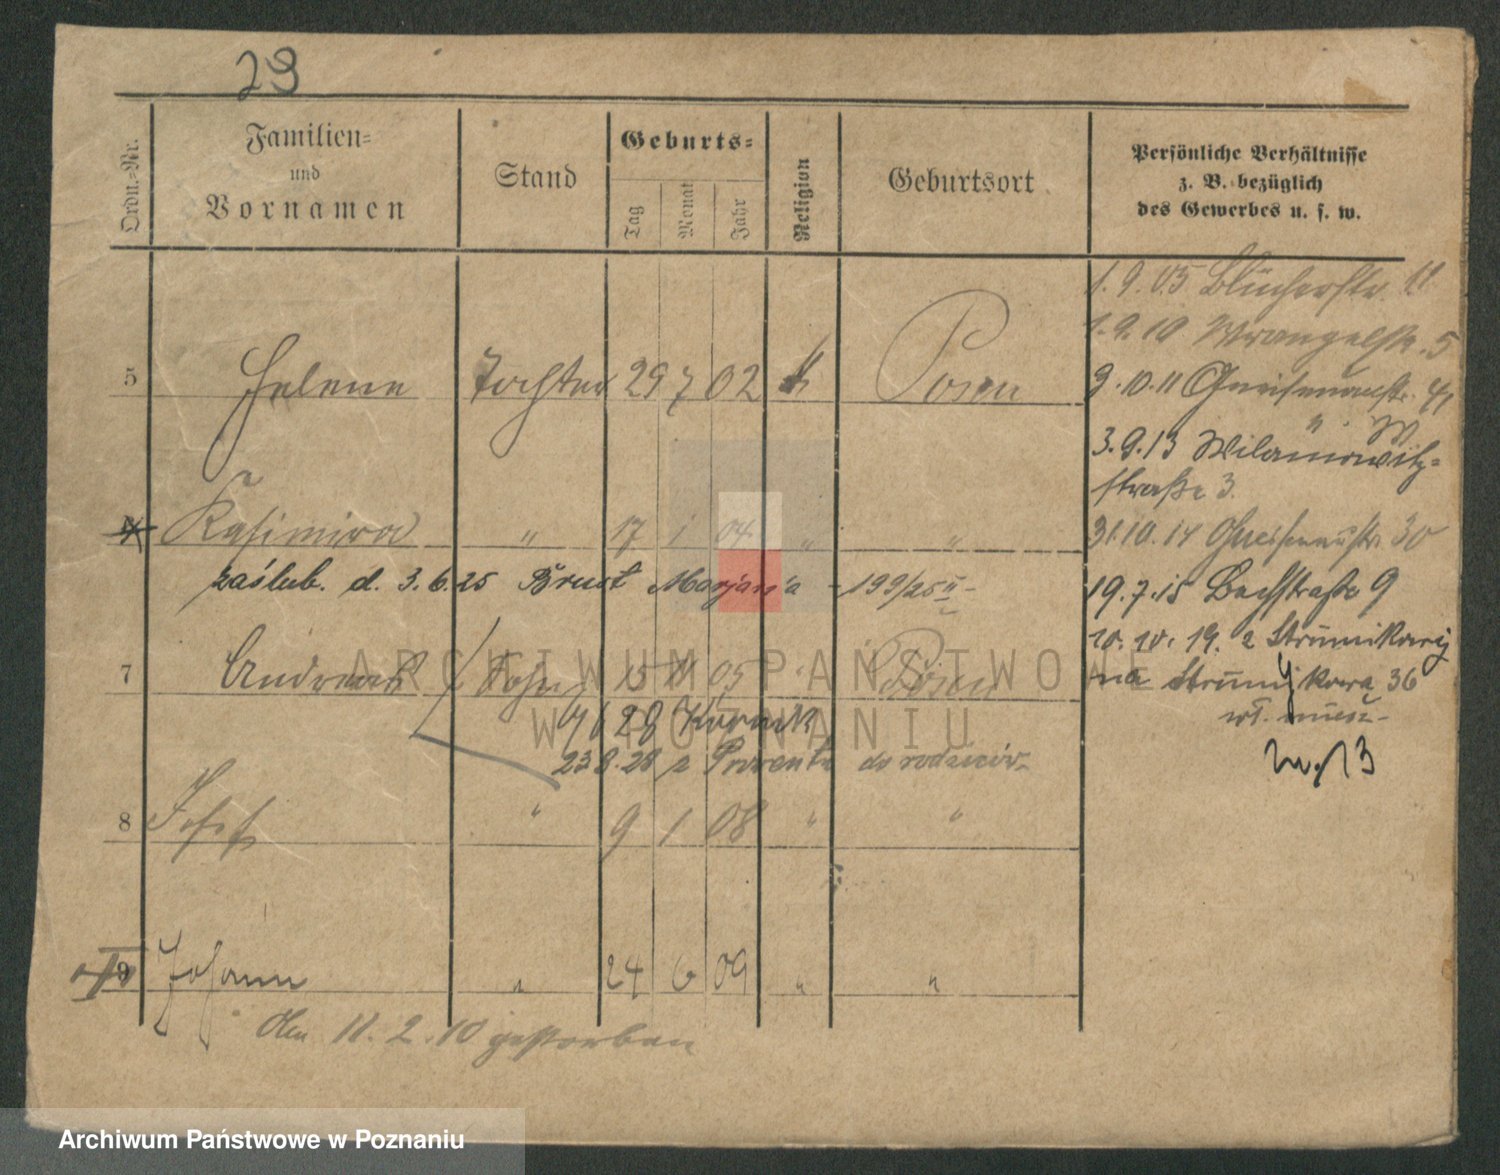 29
Ordn.-Nr.
Familien-
und
Vornamen
Stand
Geburts-
Tag
Monat
Jahr
Religion
Geburtsort
Persönliche Verhältnisse
z. B. bezüglich
des Gewerbes u. s. w.
5 Helene Tochter 29 7 02 k Posen
Kasimira " 17 1 04 " "
zaślub. d. 3.6.25 Brust Marjania - 199/25 II -
7 Andreas Sohn 15 11 05 Posen
28 Kurnik
23 8.28 z do rodziców
8 Josef " 9 1 08 " "
9 Johann " 24 6 09 " "
Am 11.2.10 gestorben
1.9.05 Blücherstr. 11
1.9.10 Wrangelstr. 5
3.10.11 Gneisenaustr. 41
" W
3.9.13 Wilamowitz-
straße 3.
31.10.14 Gneisenaustr. 30
19.7.15 Bachstraße 9
10.10.19. z Strumikowej
na Strumykowa 36
wł. miesz-
ARCHIWUM PAŃSTWOWE
W POZNANIU
Archiwum Państwowe w Poznaniu